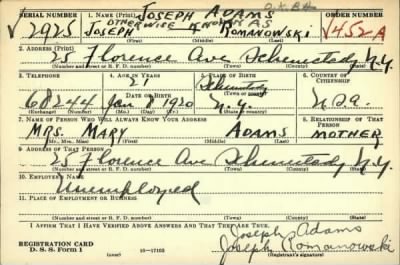 SERIAL NUMBER 1. NAME (Print) JOSEPH ADAMS ORDER NUMBER
OTHERWISE KNOWN AS
√ 2925 JOSEPH ROMANOWSKI √452A
(First) (Middle) (Last)
2. ADDRESS (Print)
25 Florence Ave Schenectady N.Y.
(Number and street or R. F. D. number) (Town) (County) (State)
3. TELEPHONE 4. AGE IN YEARS 5. PLACE OF BIRTH 6. COUNTRY OF CITIZENSHIP
21 Schenectady
DATE OF BIRTH (Town or county)
68244 Jan 8 1920 N.Y. U.S.A.
(Exchange) (Number) (Mo.) (Day) (Yr.) (State or country)
7. NAME OF PERSON WHO WILL ALWAYS KNOW YOUR ADDRESS 8. RELATIONSHIP OF THAT PERSON
MRS. MARY ADAMS MOTHER
(Mr., Mrs., Miss) (First) (Middle) (Last)
9. ADDRESS OF THAT PERSON
25 Florence Ave. Schenectady N.Y.
(Number and street or R. F. D. number) (Town) (County) (State)
10. EMPLOYER'S NAME
Unemployed
11. PLACE OF EMPLOYMENT OR BUSINESS
(Number and street or R. F. D. number) (Town) (County) (State)
I AFFIRM THAT I HAVE VERIFIED ABOVE ANSWERS AND THAT THEY ARE TRUE.
Joseph Adams
REGISTRATION CARD Joseph Romanowski
D. S. S. Form 1 16—17105 (Registrant's signature)
(over)